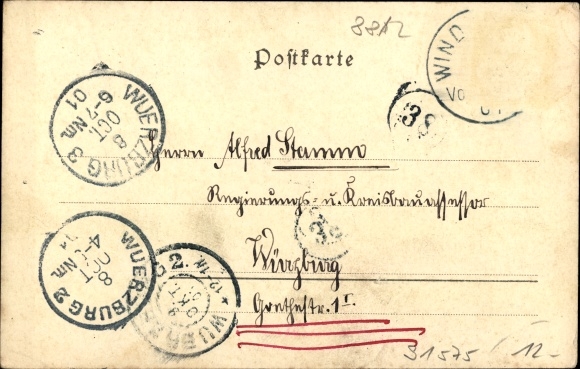 38A2
Postkarte
WIND
Vo
01
WUERZBURG 3
8 OCT
6-7 Nm.
01
38
Herrn Alfred Stamm
Regierungs- u. Kreisbauassessor
Würzburg
Goethestr. 1 I
WUERZBURG 2
8 OCT
Nm.
WUERZ
2
12-1N.
OKT
31575
12.-